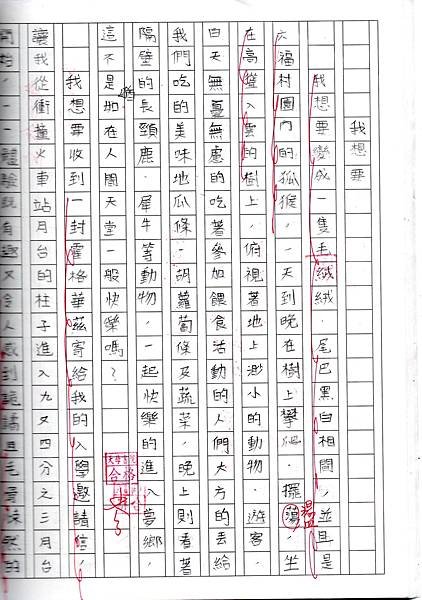 我想要
我想要變成一隻毛絨絨、尾巴黑白相間,並且是
六福村園門的狐猴,一天到晚在樹上攀爬、擺盪、坐
盪
在高聳入雲的樹上,俯視著地上渺小的動物、遊客,
白天無憂無慮的吃著參加餵食活動的人們大方的丟給
我們吃的美味地瓜條、胡蘿蔔條及蔬菜,晚上則看著
隔壁的長頸鹿、犀牛等動物,一起快樂的進入夢鄉,
這不是如在人間天堂一般快樂嗎?
合格
我想要收到一封霍格華茲寄給我的入學邀請信,
讓我從衝撞火車站月台的柱子進入九又四分之三月台
開始,一一體驗既有趣又令人感到詭譎且毛骨悚然的